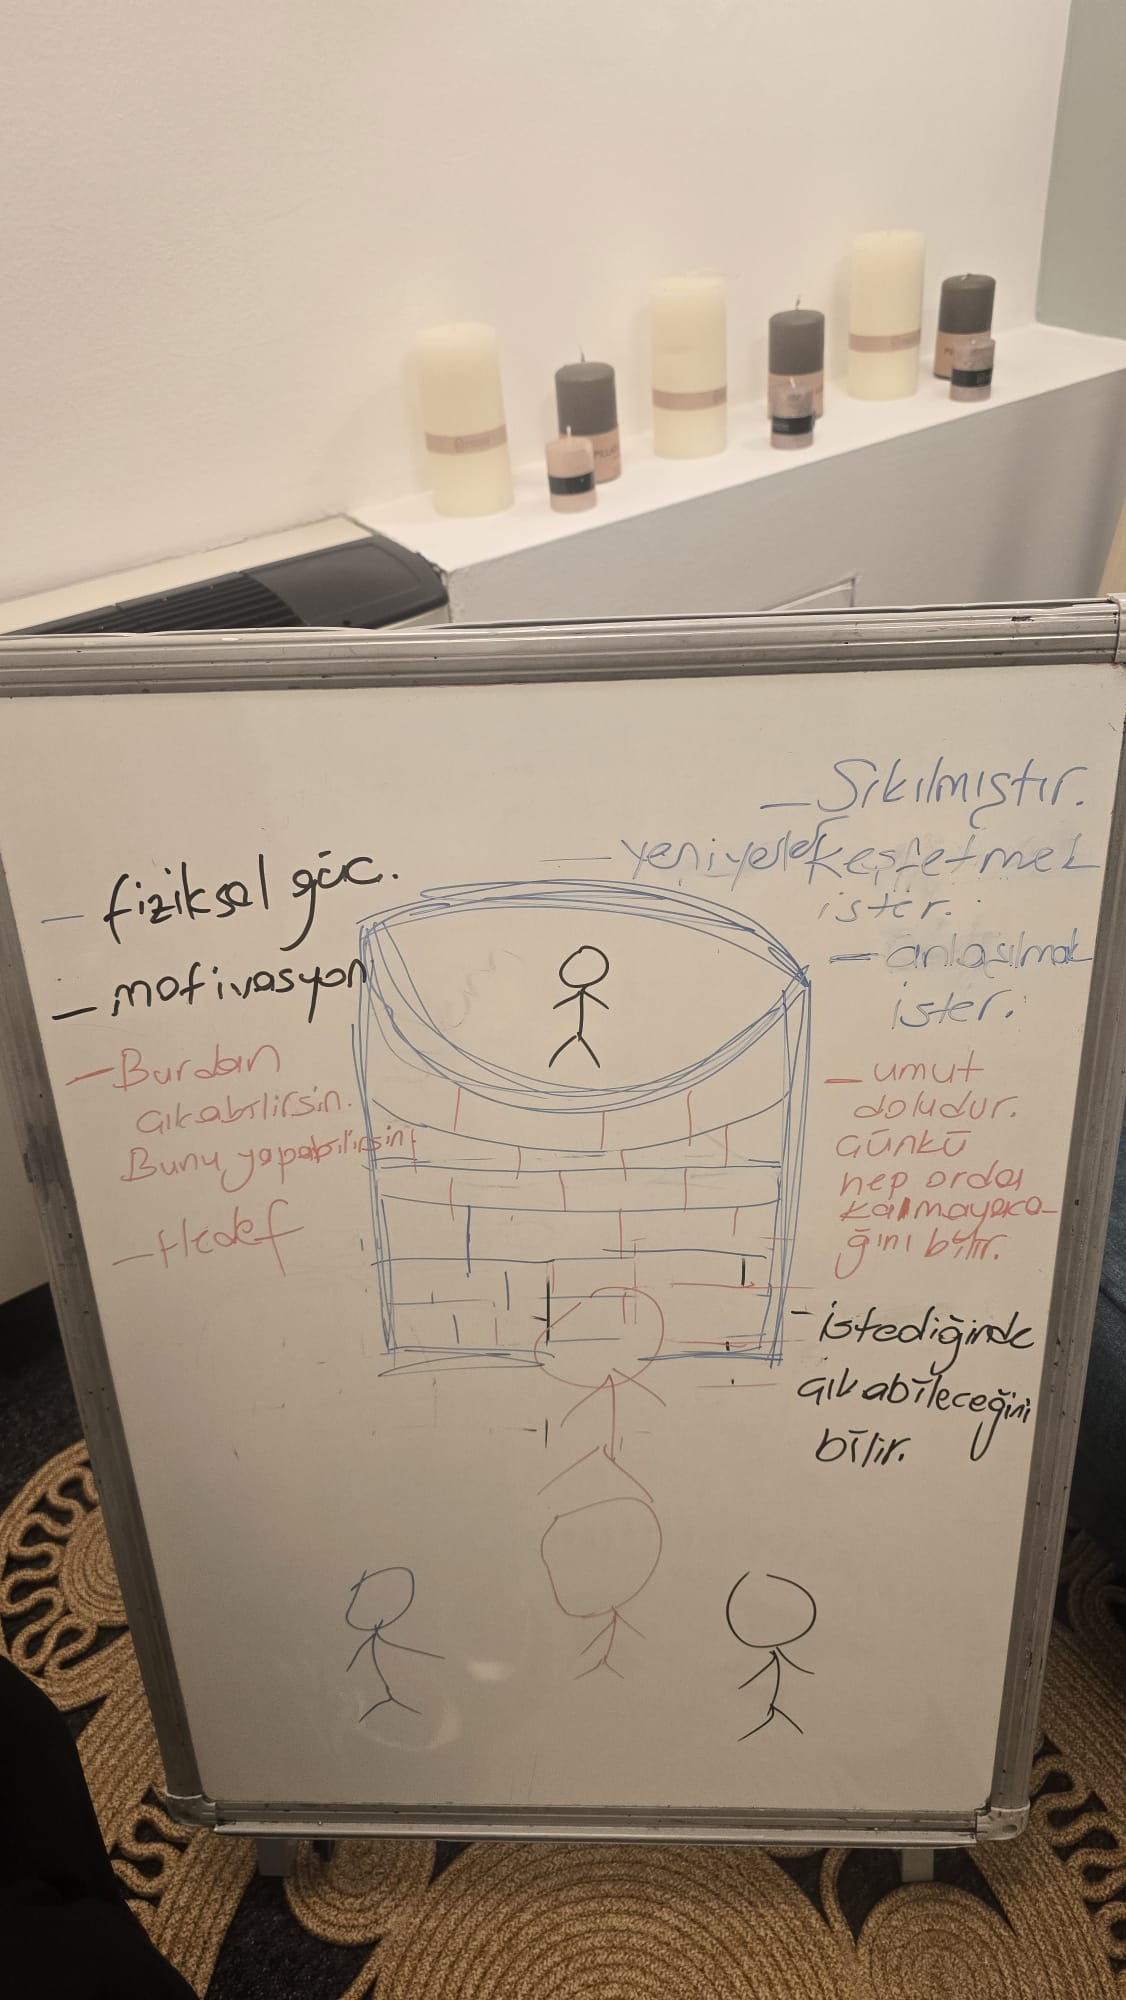 - fiziksel güç.
- motivasyon
- Burdan
çıkabilirsin.
Bunu yapabilirsin!
- Hedef
- Sıkılmıştır.
- yeni yerler keşfetmek
ister.
- anlaşılmak
ister.
- umut
doludur.
Çünkü
hep orda
kalmayaca-
ğını bilir.
- istediğinde
çıkabileceğini
bilir.